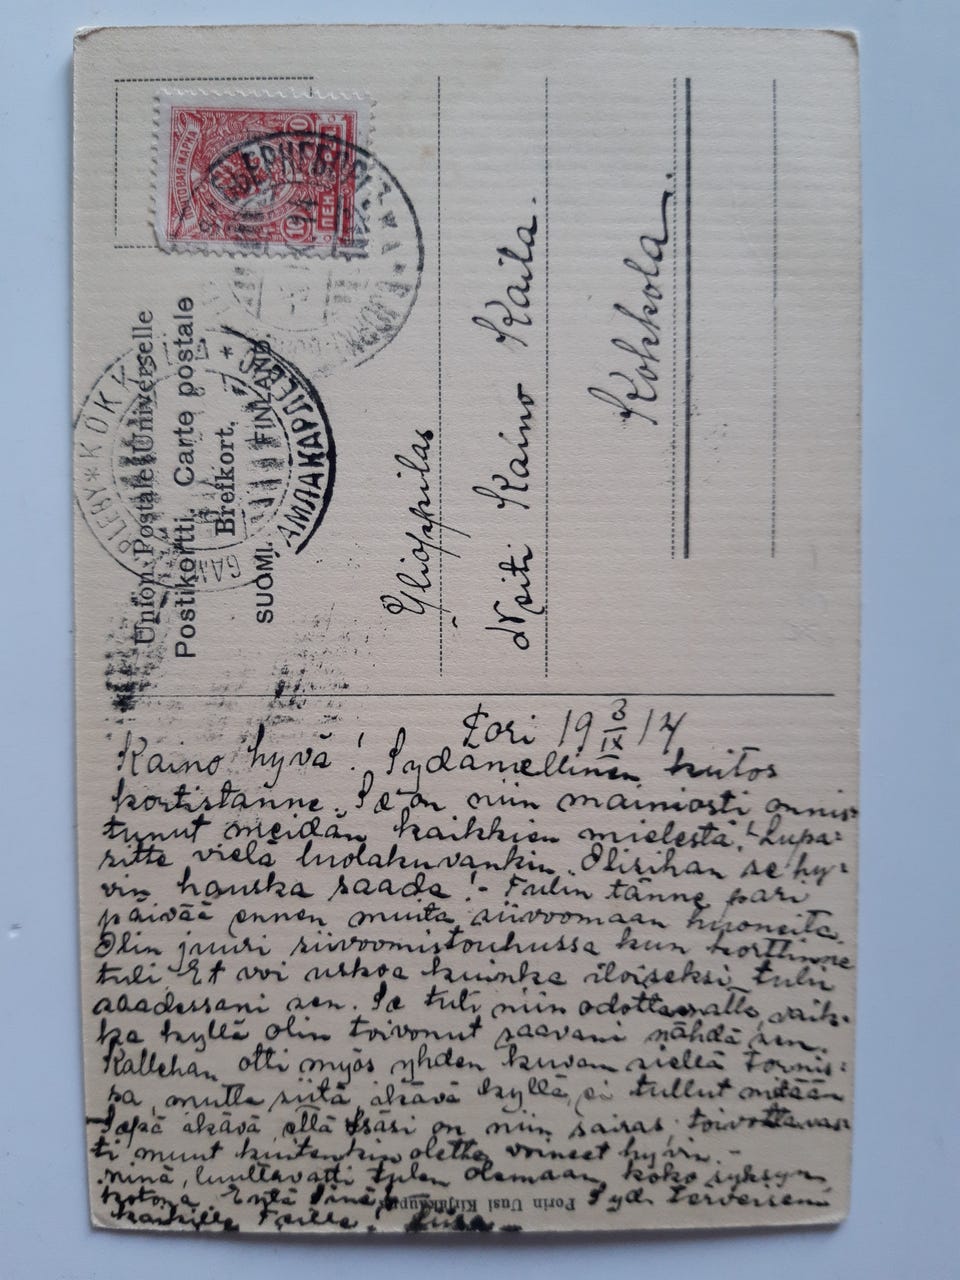 Union Postale Universelle
Postikortti. Carte postale
Brefkort.
SUOMI. FINLAND.
ПОЧТОВАЯ МАРКА
10 ПЕН
Ylioppilas
Neiti Kaino Kaila.
Kokkola.
Pori 19 3/IX 14
Kaino hyvä! Sydämellinen kiitos
kortistanne. Se on niin mainiosti onnis-
tunut meidän kaikkien mielestä. Lupa-
sitte vielä luolakuvankin. Olisihan se hy-
vin hauska saada! - Tulin tänne pari
päivää ennen muita siivoomaan huoneita.
Olin juuri siivoomistouhussa kun korttinne
tuli. Et voi uskoa kuinka iloiseksi tulin
saadessani sen. Se tuli niin odottamatta, vaik-
ka kyllä olin toivonut saavani nähdä sen.
Kallehan otti myös yhden kuvan siellä tornis-
sa, mutta siitä, ikävä kyllä, ei tullut mitään
Sepä ikävä, että Isäsi on niin sairas, toivottavas-
ti muut kuitenkin olette voineet hyvin. -
minä, luultavatti tulen olemaan koko syksyn
kotona. Entä Sinä? Syd. terveiseni
kaikille Teille!
Porin Uusi Kirjakauppa